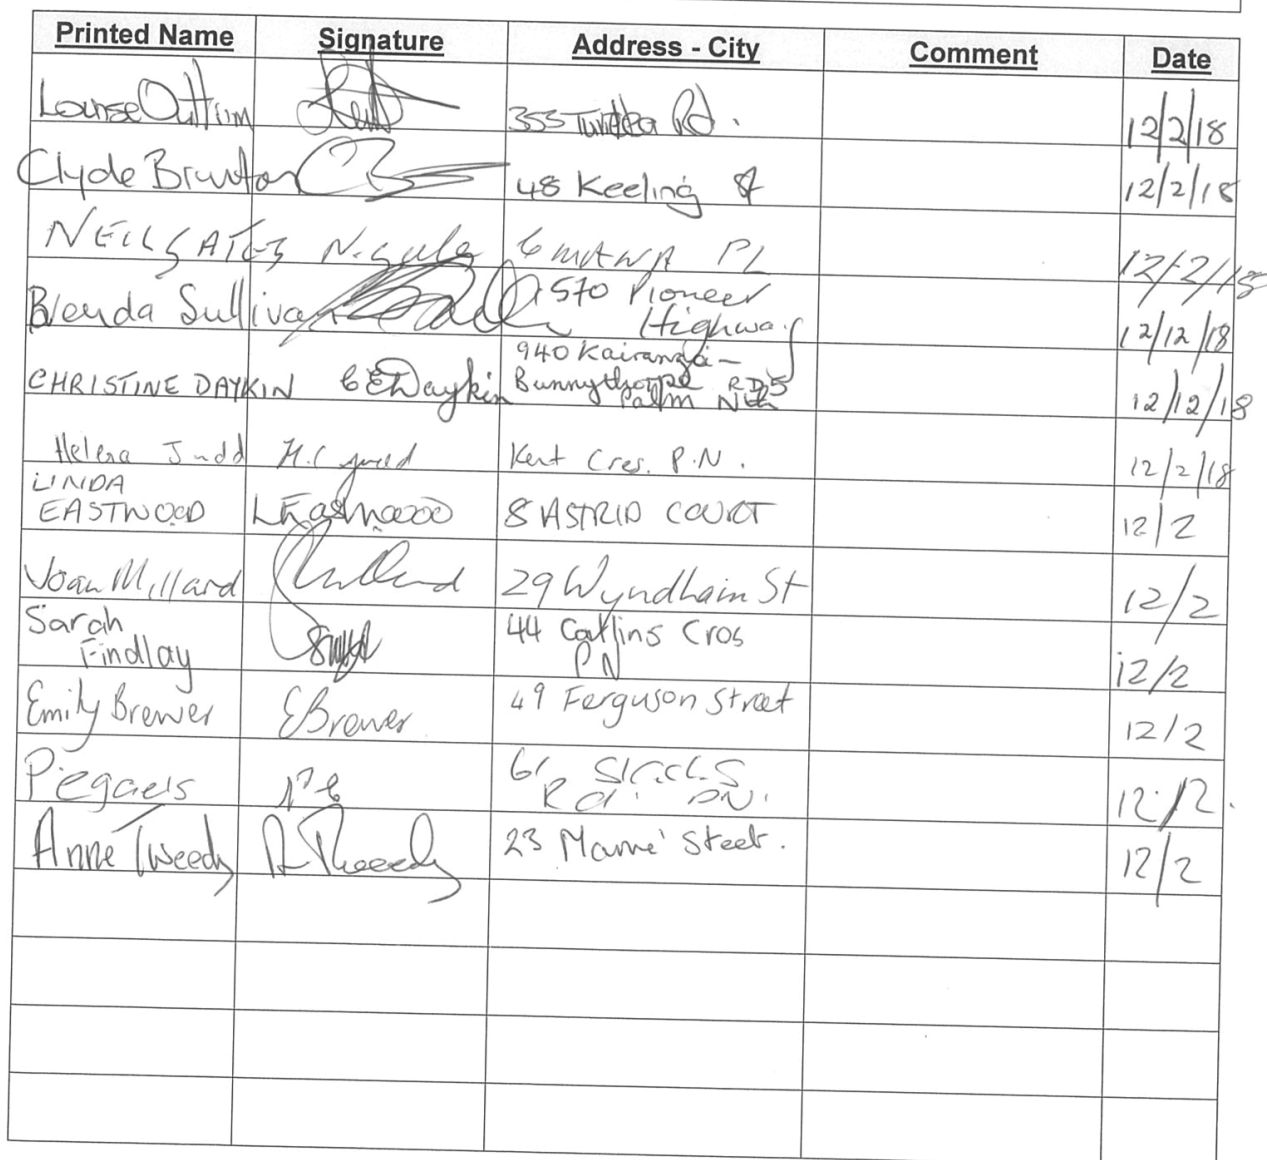 Printed Name Signature Address - City Comment Date
Louise Outtrim 355 Turitea Rd. 12/2/18
Clyde 48 Keeling St 12/2/18
NEIL GATES N. Gates 6 MAWA PL 12/2/18
Brenda Sullivan 1570 Pioneer
Highway 12/12/18
940 Kairanga-
CHRISTINE DAYKIN CE Daykin Bunnythorpe RD5
Palm Nth 12/12/18
Helena Judd H.C Judd Kent Cres. P.N. 12/2/18
LINDA
EASTWOOD L Eastwood 8 ASTRID COURT 12/2
Joan Millard 29 Wyndham St 12/2
Sarah 44 Catlins Cres
Findlay PN 12/2
Emily Brewer E Brewer 49 Ferguson Street 12/2
Slacks
Rd. P.N. 12/2.
Anne Tweedy A Tweedy 23 Street. 12/2